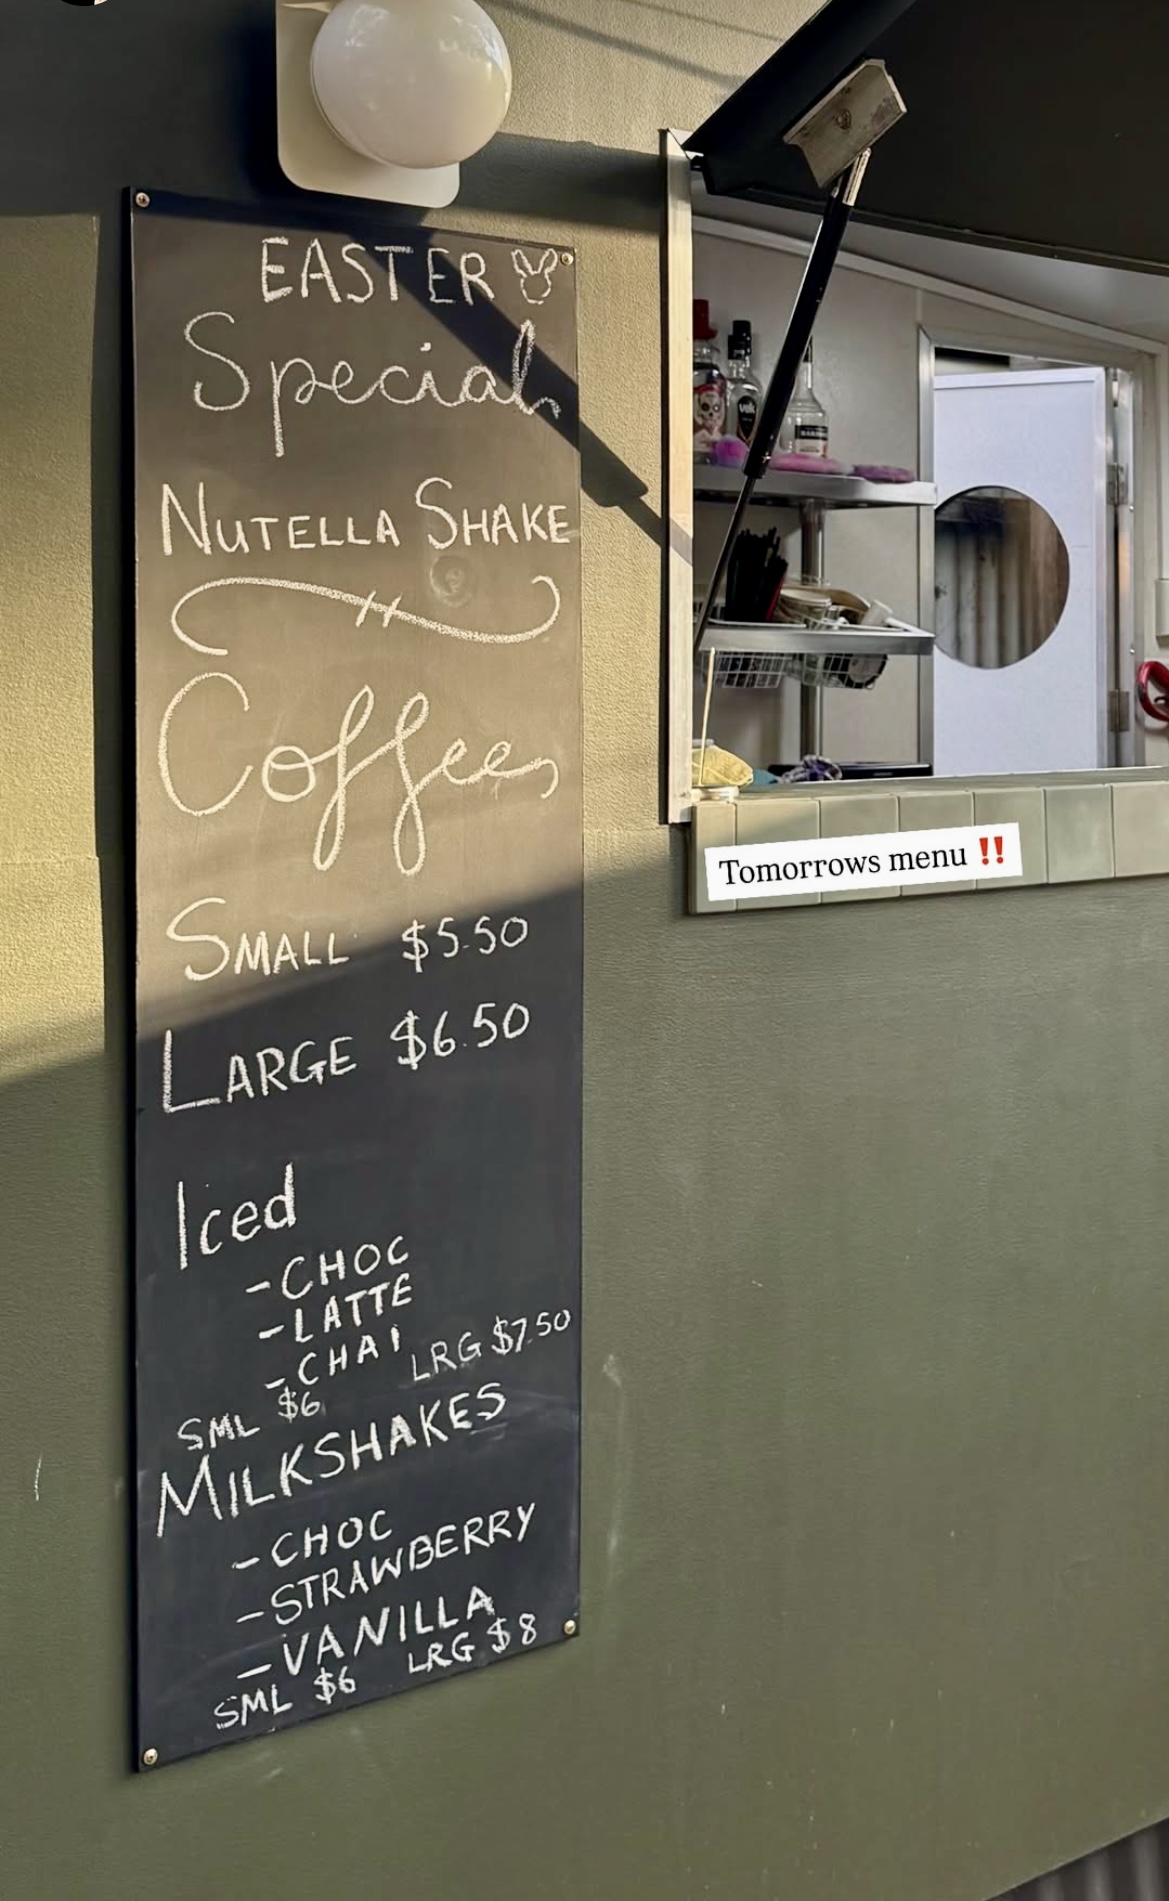 EASTER
Special
NUTELLA SHAKE
Coffees
SMALL $5.50
LARGE $6.50
Iced
- CHOC
- LATTE
- CHAI
SML $6 LRG $7.50
MILKSHAKES
- CHOC
- STRAWBERRY
- VANILLA
SML $6 LRG $8
Tomorrows menu ‼️